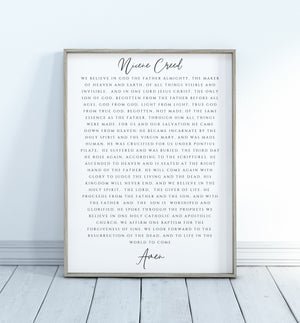 Nicene Creed
WE BELIEVE IN GOD THE FATHER ALMIGHTY, THE MAKER
OF HEAVEN AND EARTH, OF ALL THINGS VISIBLE AND
INVISIBLE. AND IN ONE LORD JESUS CHRIST, THE ONLY
SON OF GOD, BEGOTTEN FROM THE FATHER BEFORE ALL
AGES, GOD FROM GOD, LIGHT FROM LIGHT, TRUE GOD
FROM TRUE GOD, BEGOTTEN, NOT MADE, OF THE SAME
ESSENCE AS THE FATHER. THROUGH HIM ALL THINGS
WERE MADE. FOR US AND OUR SALVATION HE CAME
DOWN FROM HEAVEN; HE BECAME INCARNATE BY THE
HOLY SPIRIT AND THE VIRGIN MARY, AND WAS MADE
HUMAN. HE WAS CRUCIFIED FOR US UNDER PONTIUS
PILATE, HE SUFFERED AND WAS BURIED. THE THIRD DAY
HE ROSE AGAIN, ACCORDING TO THE SCRIPTURES. HE
ASCENDED TO HEAVEN AND IS SEATED AT THE RIGHT
HAND OF THE FATHER. HE WILL COME AGAIN WITH
GLORY TO JUDGE THE LIVING AND THE DEAD. HIS
KINGDOM WILL NEVER END. AND WE BELIEVE IN THE
HOLY SPIRIT, THE LORD, THE GIVER OF LIFE. HE
PROCEEDS FROM THE FATHER AND THE SON, AND WITH
THE FATHER AND THE SON IS WORSHIPED AND
GLORIFIED. HE SPOKE THROUGH THE PROPHETS WE
BELIEVE IN ONE HOLY CATHOLIC AND APOSTOLIC
CHURCH. WE AFFIRM ONE BAPTISM FOR THE
FORGIVENESS OF SINS. WE LOOK FORWARD TO THE
RESURRECTION OF THE DEAD, AND TO LIFE IN THE
WORLD TO COME
Amen